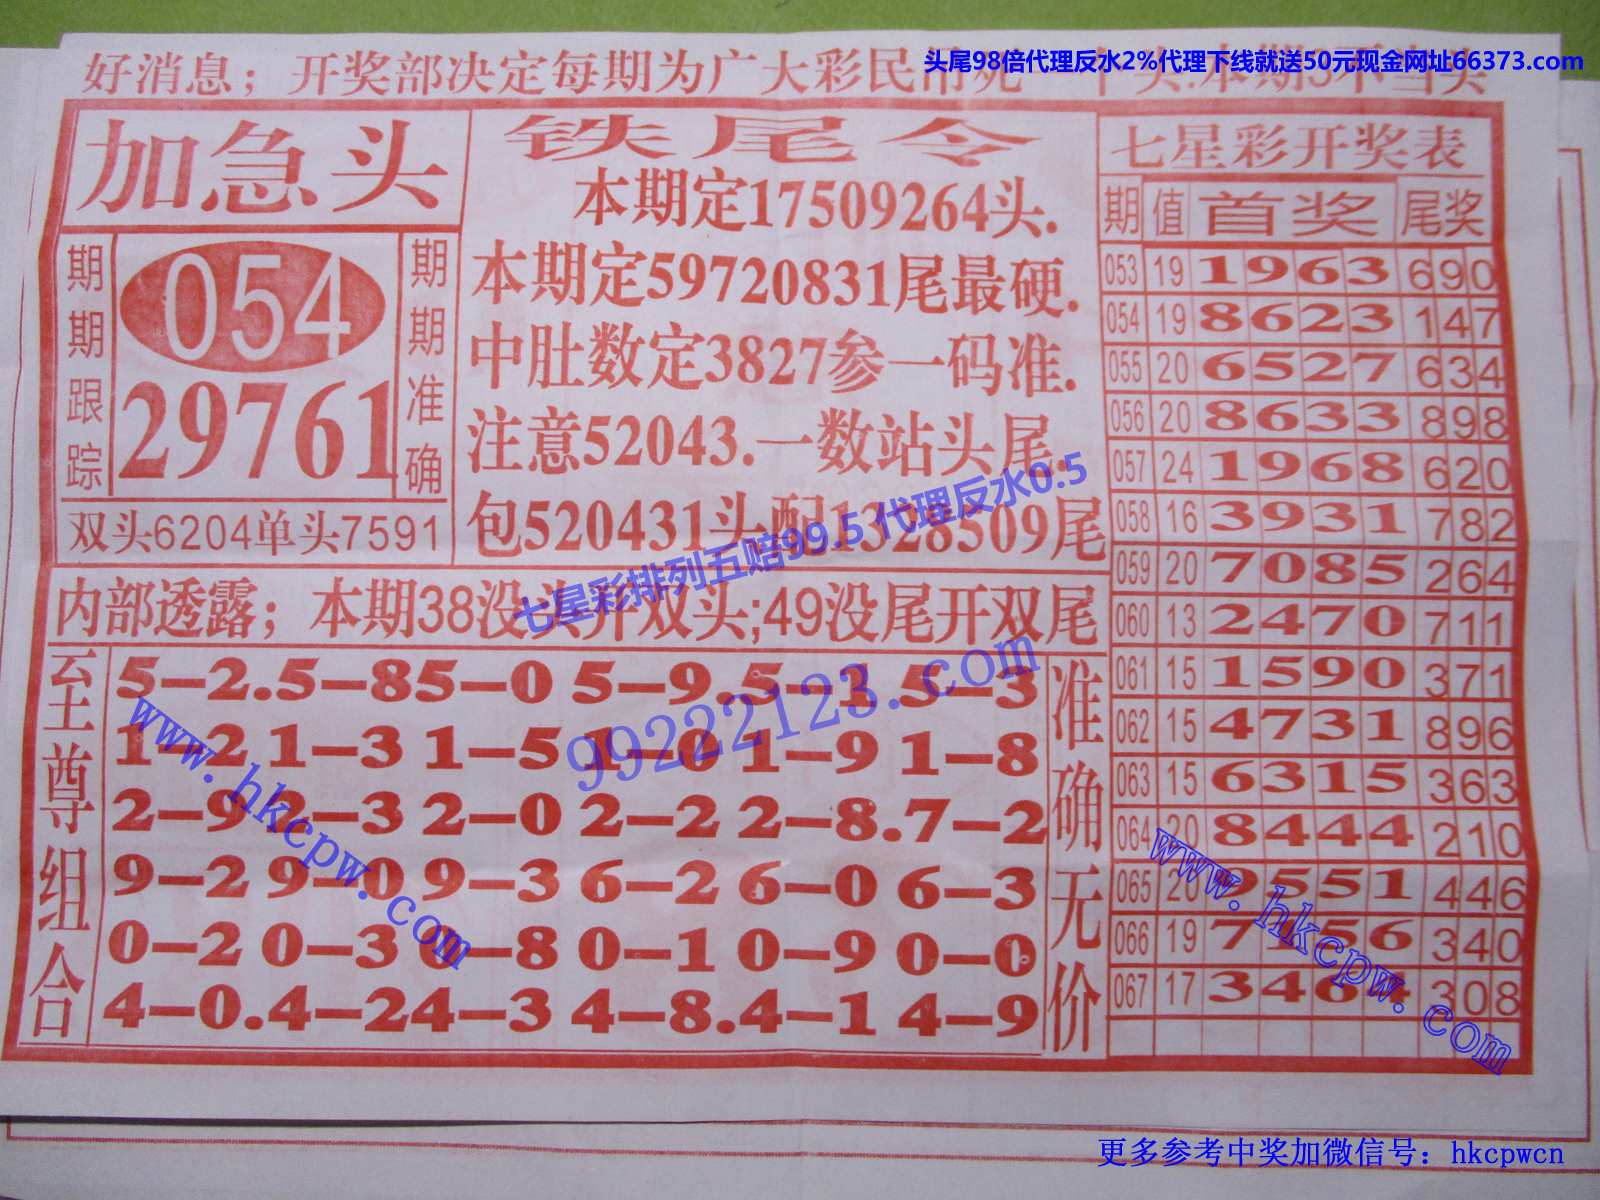 头尾98倍代理反水2%代理下线就送50元现金网址66373.com
好消息；开奖部决定每期为广大彩民吊死一个头.本期3不当头
加急头
期期跟踪
054
29761
期期准确
双头6204单头7591
铁尾令
本期定17509264头.
本期定59720831尾最硬.
中肚数定3827参一码准.
注意52043.一数站头尾.
包520431头配1328509尾
七星彩排列五赔99.5 代理反水0.5
内部透露；本期38没头开双头;49没尾开双尾
99222123.com
至尊组合
5-2.5-85-0 5-9.5-1 5-3
1-2 1-3 1-5 1-0 1-9 1-8
2-9 2-3 2-0 2-2 2-8.7-2
9-2 9-0 9-3 6-2 6-0 6-3
0-2 0-3 0-8 0-1 0-9 0-0
4-0.4-24-3 4-8.4-1 4-9
准确无价
www.hkcpw.com
七星彩开奖表
期 值 首奖 尾奖
053 19 1963 690
054 19 8623 147
055 20 6527 634
056 20 8633 898
057 24 1968 620
058 16 3931 782
059 20 7085 264
060 13 2470 711
061 15 1590 371
062 15 4731 896
063 15 6315 363
064 20 8444 210
065 20 9551 446
066 19 7156 340
067 17 3464 308
www.hkcpw.com
更多参考中奖加微信号：hkcpwcn